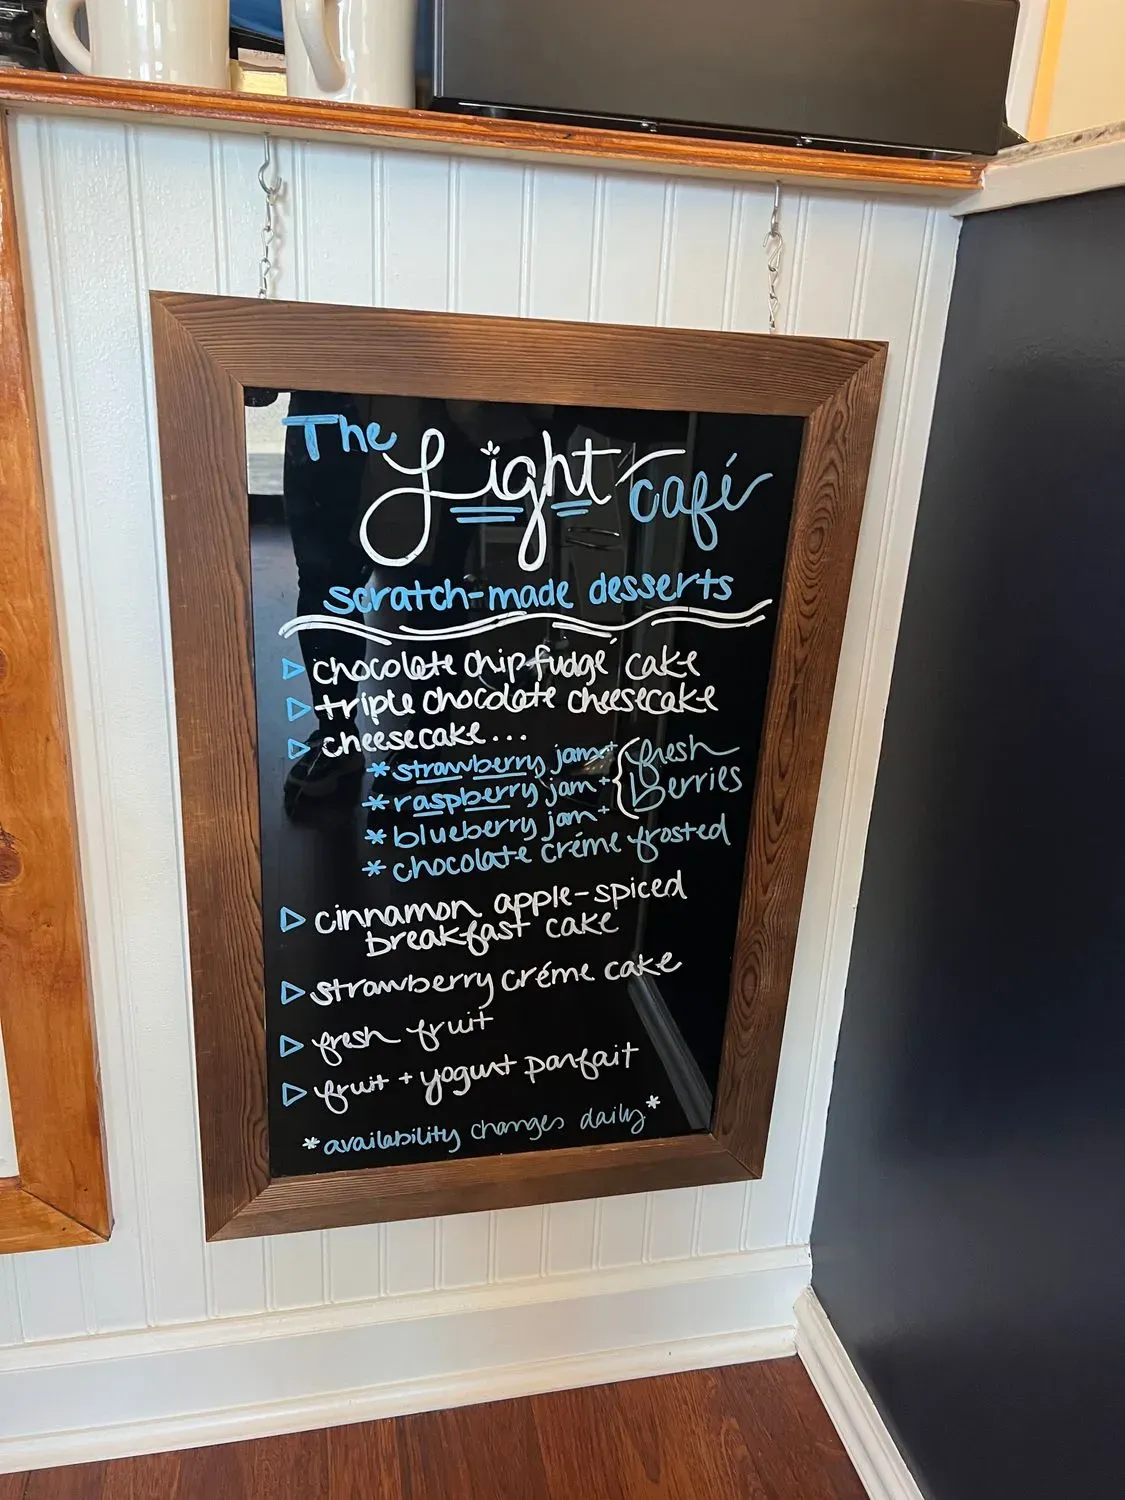 The Light café
scratch-made desserts
▷ chocolate chip fudge cake
▷ triple chocolate cheesecake
▷ cheesecake...
* strawberry jam +
* raspberry jam +
* blueberry jam +
{ fresh
berries
* chocolate créme frosted
▷ cinnamon apple-spiced
breakfast cake
▷ strawberry créme cake
▷ fresh fruit
▷ fruit + yogurt parfait
*availability changes daily*